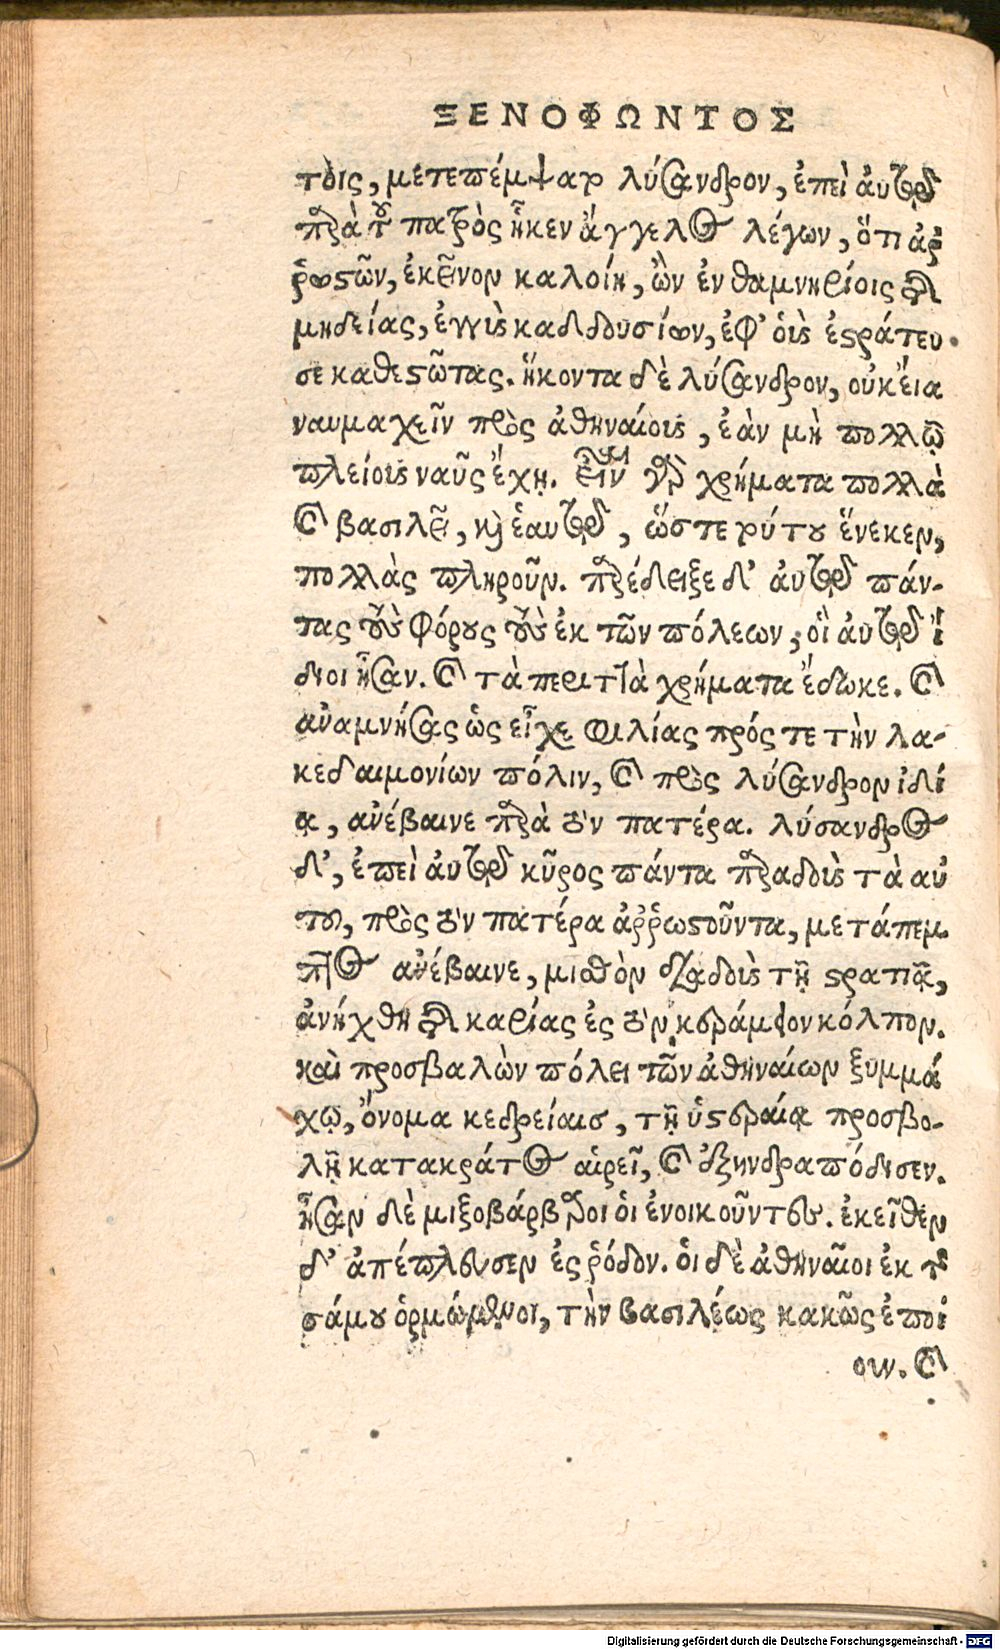 ΞΕΝΟΦΩΝΤΟΣ
τοις, μετεπέμψαν λύσανδρον, ἐπεὶ ἀυτῷ
παρὰ τοῦ πατρὸς ἧκεν ἄγγελος λέγων, ὅτι ἀρ
ῥωστῶν, ἐκεῖνον καλοίη, ὢν ἐν θαμνηρίοις τῆς
μηδείας, ἐγγὺς καδδουσίων, ἐφ' οὓς ἐστράτευ
σε καθεστῶτας. ἥκοντα δὲ λύσανδρον, οὐκ εἴα
ναυμαχεῖν πρὸς ἀθηναίους, ἐὰν μὴ πολλῷ
πλείους ναῦς ἔχῃ. εἶναι γὰρ χρήματα πολλὰ
καὶ βασιλεῖ, καὶ ἑαυτῷ, ὥστε τούτου ἕνεκεν,
πολλὰς πληροῦν. παρέδειξε δ' ἀυτῷ πάν-
τας τοὺς φόρους τοὺς ἐκ τῶν πόλεων, οἳ ἀυτῷ ἴ
διοι ἦσαν. καὶ τὰ περιττὰ χρήματα ἔδωκε. καὶ
ἀναμνήσας ὡς εἶχε φιλίας πρός τε τὴν λα-
κεδαιμονίων πόλιν, καὶ πρὸς λύσανδρον ἰδί
ᾳ, ἀνέβαινε παρὰ τὸν πατέρα. λύσανδρος
δ', ἐπεὶ ἀυτῷ κῦρος πάντα παραδοὺς τὰ αὐ
τοῦ, πρὸς τὸν πατέρα ἀῤῥωστοῦντα, μετάπεμ-
πτος ἀνέβαινε, μισθὸν διαδοὺς τῇ στρατιᾷ,
ἀνήχθη τῆς καρίας ἐς τὸν κεράμειον κόλπον.
καὶ προσβαλὼν πόλει τῶν ἀθηναίων ξυμμά
χῳ, ὄνομα κεδρείαις, τῇ ὑστεραίᾳ προσβο-
λῇ κατακράτος αἱρεῖ, καὶ ἐξηνδραπόδισεν.
ἦσαν δὲ μιξοβάρβαροι οἱ ἐνοικοῦντες. ἐκεῖθεν
δ' ἀπέπλευσεν ἐς ῥόδον. οἱ δὲ ἀθηναῖοι ἐκ τῆς
σάμου ὁρμώμενοι, τὴν βασιλέως κακῶς ἐποί
ουν. καὶ
Digitalisierung gefördert durch die Deutsche Forschungsgemeinschaft - DFG